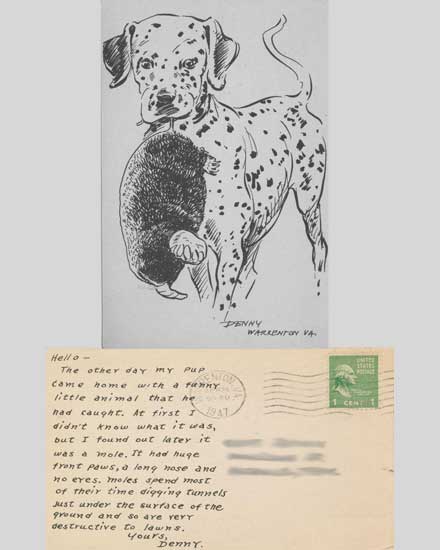 DENNY
WARRENTON VA.
Hello —
The other day my pup
came home with a funny
little animal that he
had caught. At first I
didn't know what it was,
but I found out later it
was a mole. It had huge
front paws, a long nose and
no eyes. moles spend most
of their time digging tunnels
just under the surface of the
ground and so are very
destructive to lawns.
Yours,
Denny.
1947
UNITED
STATES
POSTAGE
1 CENT 1